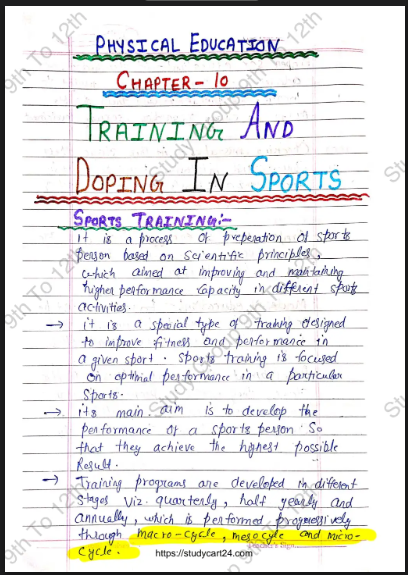 PHYSICAL EDUCATION
CHAPTER - 10
TRAINING AND
DOPING IN SPORTS
SPORTS TRAINING:-
It is a process of preperation of sports
person based on scientific principles,
which aimed at improving and maintaining
higher performance capacity in different sports
activities.
→ it is a special type of training designed
to improve fitness and performance in
a given sport. Sports training is focused
on optimal performance in a particular
Sports.
→ its main aim is to develop the
performance of a sports person So
that they achieve the highest possible
Result.
→ Training programs are developed in different
stages viz. quarterly, half yearly and
annually, which is performed, progressively
through macro-cycle, mesocycle and micro-
cycle.
https://studycart24.com
Teacher's Sign
9th To 12th
Study Group 9th To 12th
9th To 12th
Study Group 9th To 12th
9th To 12th